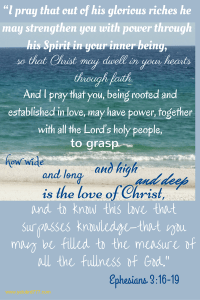 "I pray that out of his glorious riches he
may strengthen you with power through
his Spirit in your inner being,
so that Christ may dwell in your hearts
through faith.
And I pray that you, being rooted and
established in love, may have power, together
with all the Lord's holy people,
to grasp
how wide
and long
and high
and deep
is the love of Christ,
and to know this love that
surpasses knowledge—that you
may be filled to the measure of
all the fullness of God."
Ephesians 3:16-19